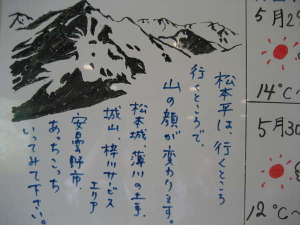 松本平は、行くところ
行くところで、
山の顔が変わります。
松本城、薄川の土手、
城山、梓川サービス
エリア
安曇野市、
あっちこっち
いってみて下さい。
5月29
14℃~
5月30
12℃~